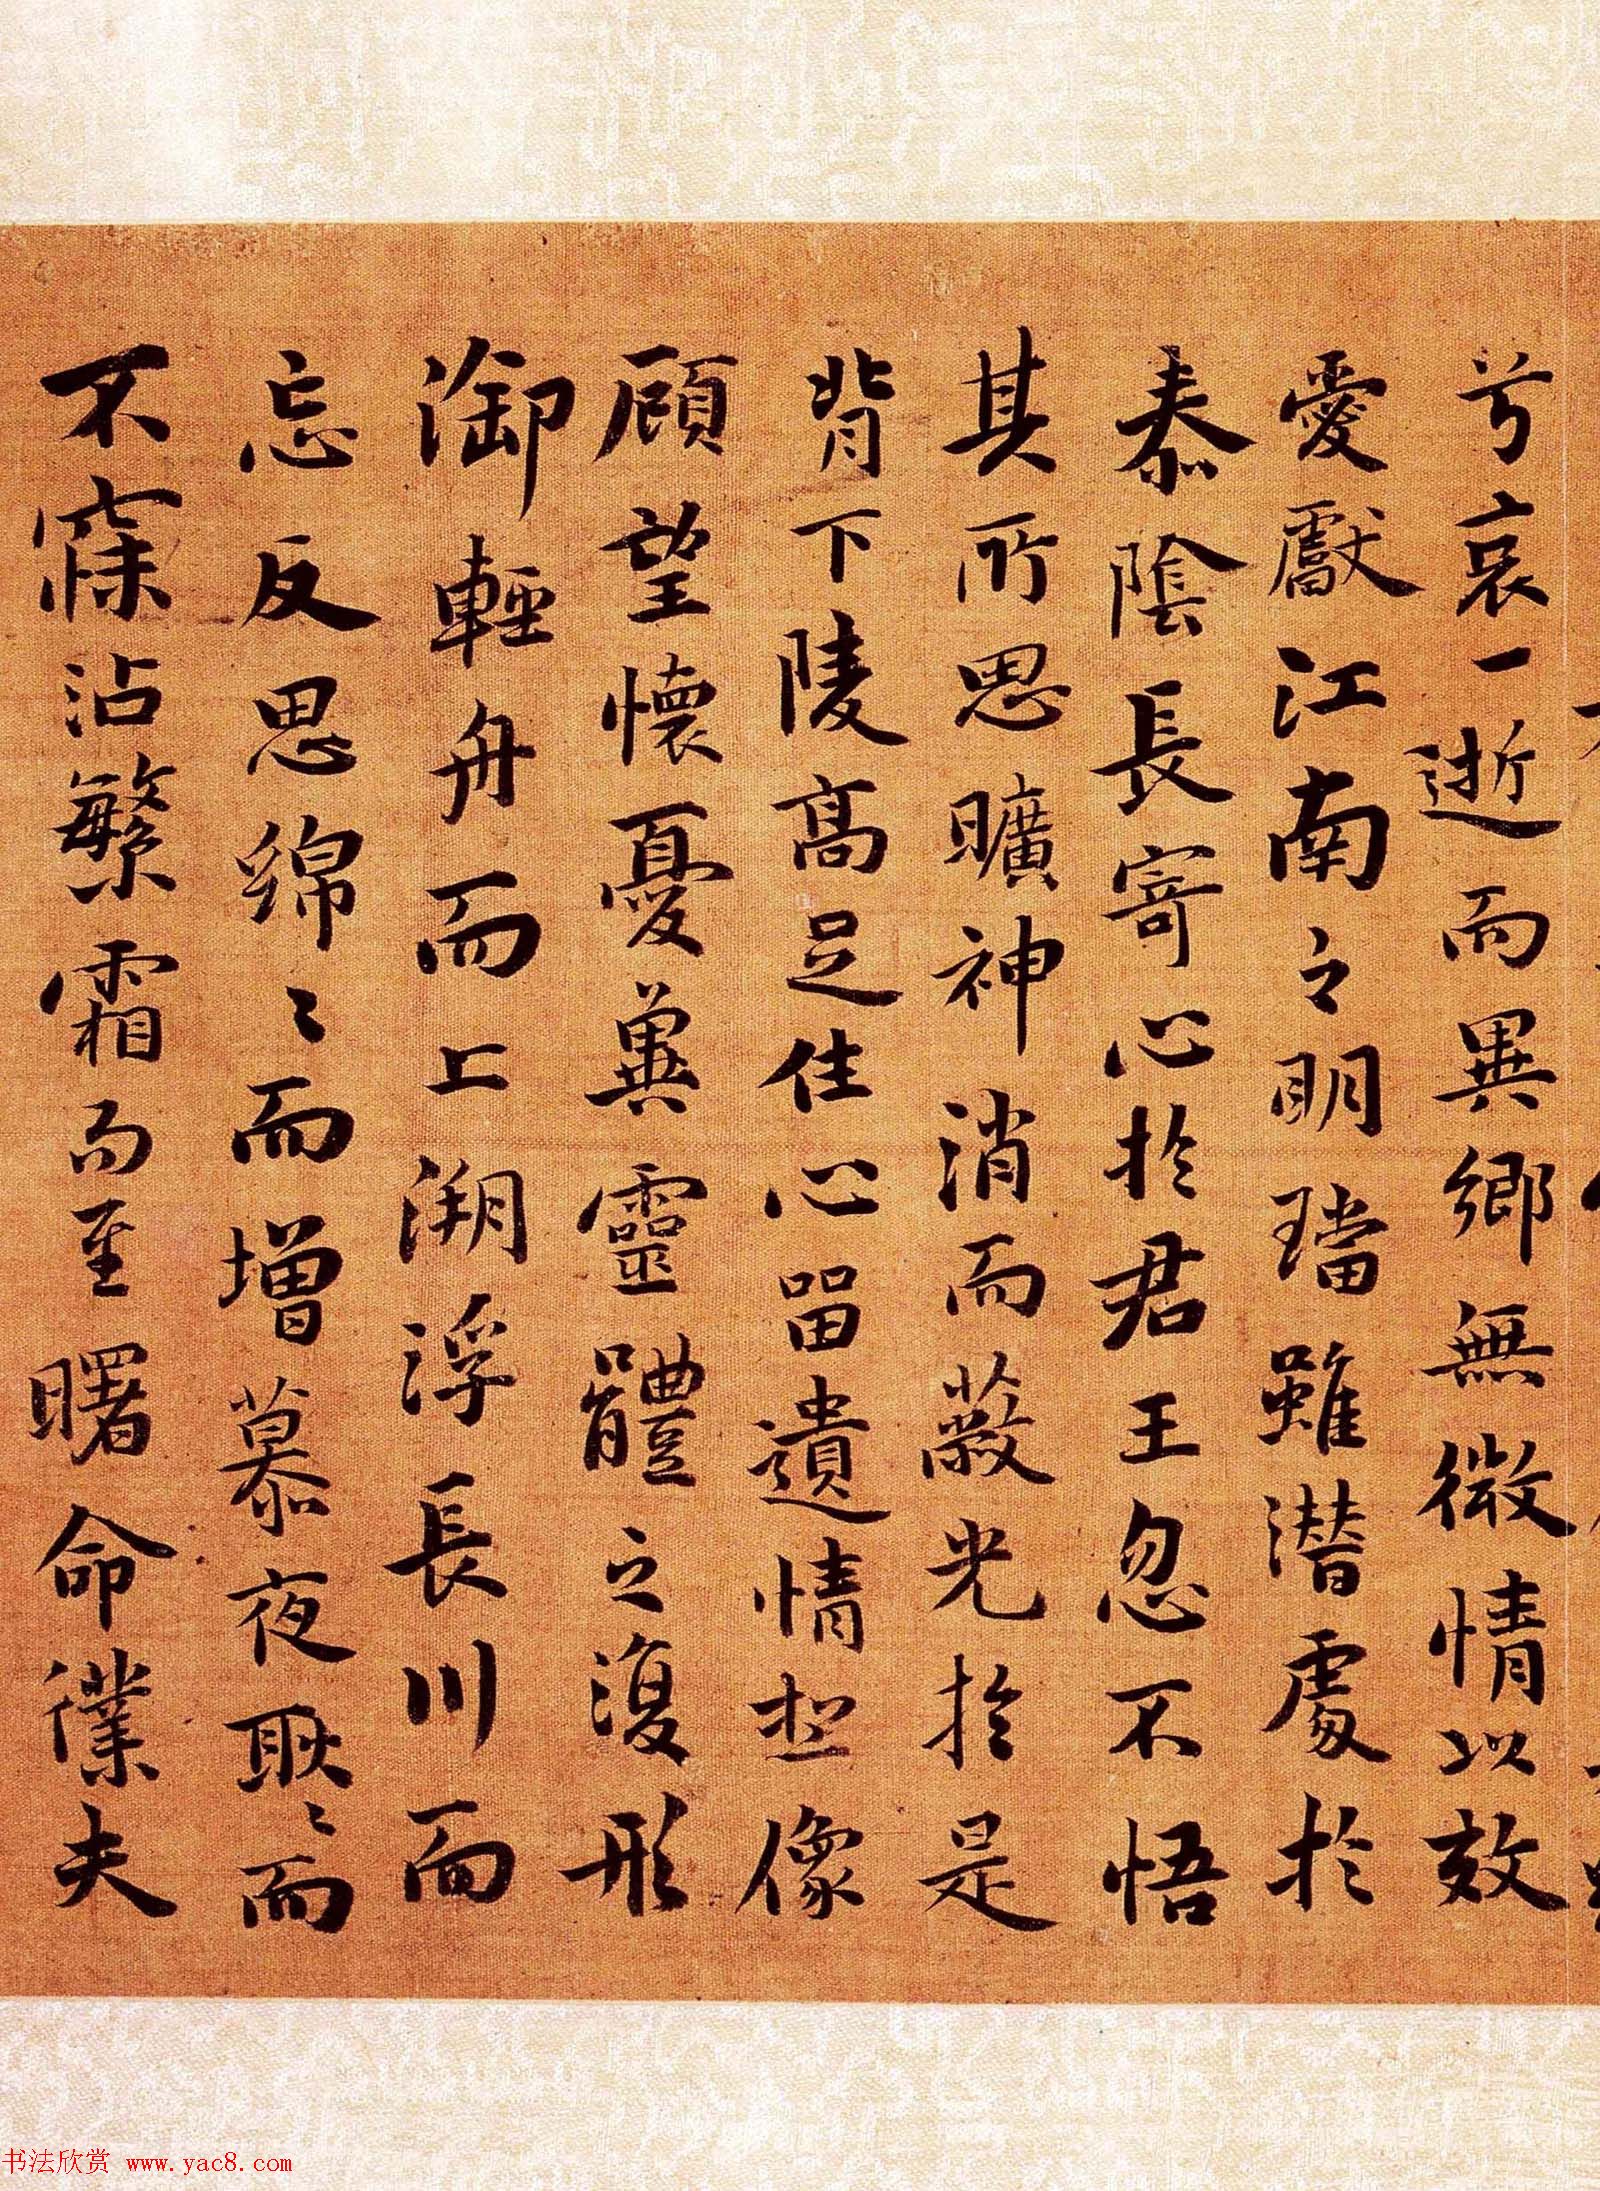 兮哀一逝而異鄉無微情以效
愛獻江南之明璫雖潛處於
泰陰長寄心於君王忽不悟
其所思曠神消而蔽光於是
背下陵高足住心留遺情想像
顧望懷憂冀靈體之復形
御輕舟而上溯浮長川而
忘反思綿〻而增慕夜耿〻而
不寐沾繁霜而至曙命僕夫
书法欣赏 www.yac8.com